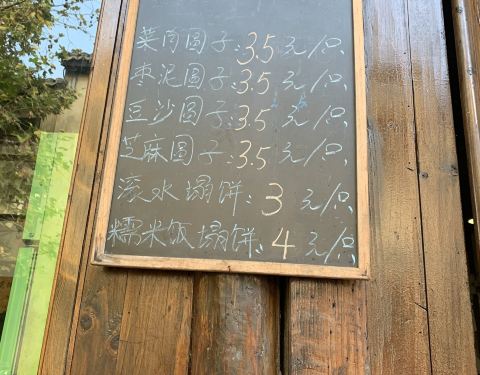 菜肉圆子:3.5元/只
枣泥圆子:3.5元/只
豆沙圆子:3.5元/只
芝麻圆子:3.5元/只
滚水塌饼:3元/只
糯米饭塌饼:4元/只